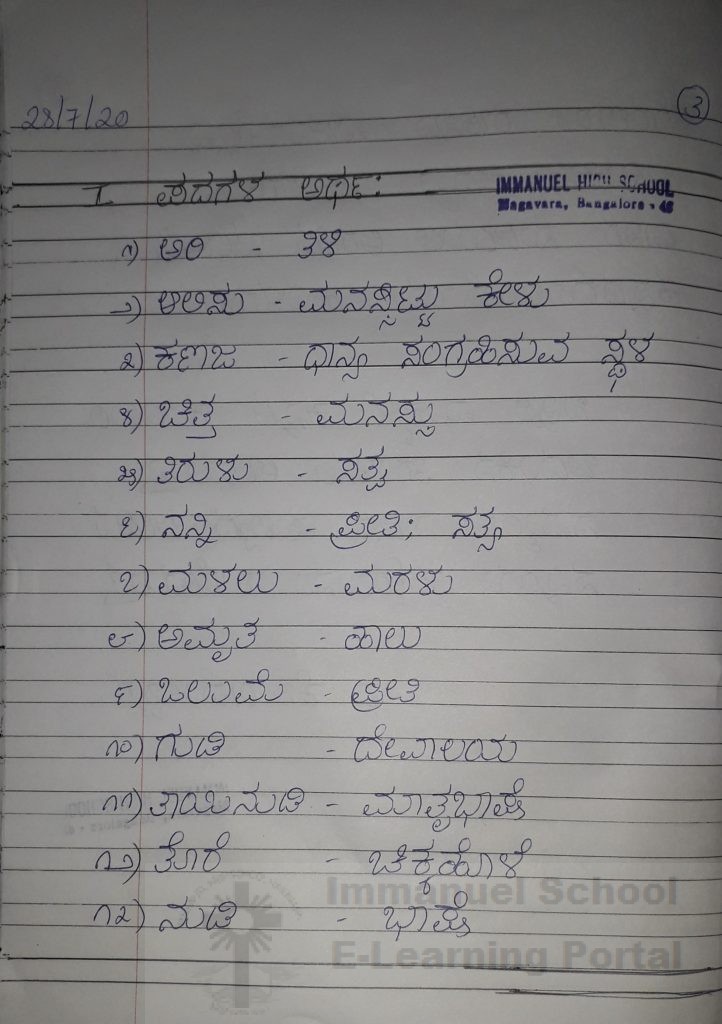 28/7/20
3
I. ಪದಗಳ ಅರ್ಥ:
IMMANUEL HIGH SCHOOL
Nagavara, Bangalore - 45
೧) ಅರಿ - ತಿಳಿ
೨) ಆಲಿಸು - ಮನಸ್ಸಿಟ್ಟು ಕೇಳು
೩) ಕಣಜ - ಧಾನ್ಯ ಸಂಗ್ರಹಿಸುವ ಸ್ಥಳ
೪) ಚಿತ್ತ - ಮನಸ್ಸು
೫) ತಿರುಳು - ಸತ್ವ
೬) ನನ್ನಿ - ಪ್ರೀತಿ; ಸತ್ಯ
೭) ಮಳಲು - ಮರಳು
೮) ಅಮೃತ - ಹಾಲು
೯) ಒಲುಮೆ - ಪ್ರೀತಿ
೧೦) ಗುಡಿ - ದೇವಾಲಯ
೧೧) ತಾಯಿನುಡಿ - ಮಾತೃಭಾಷೆ
೧೨) ತೊರೆ - ಚಿಕ್ಕಹೊಳೆ
೧೩) ನುಡಿ - ಭಾಷೆ
Immanuel School
E-Learning Portal